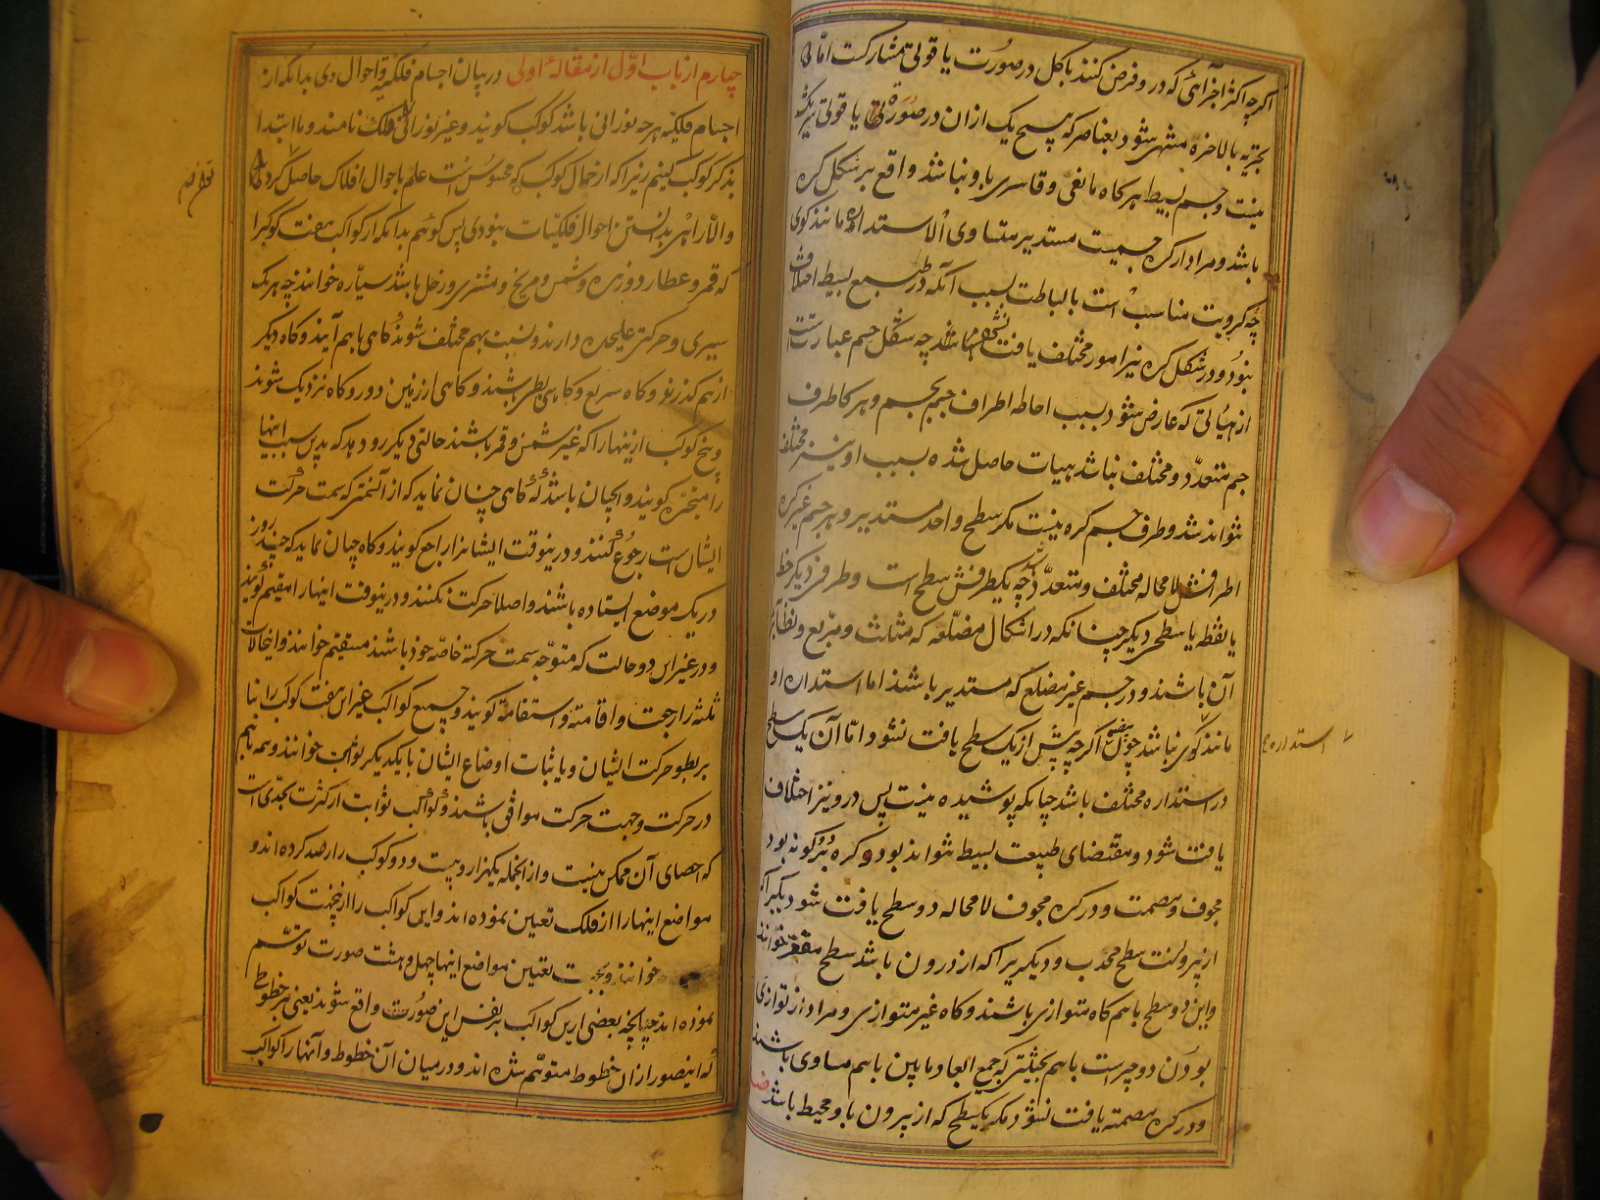 اگرچه اکثر اجزائی که درو فرض کنند با کل در صورت یا قولی مشارکت اما
تجزیه بالاخره منتهی شود بعناصر که هیچ یک ازان در صورتی یا قولی شریک
نیست و جسم بسیط هرگاه مانعی و قاسری با و نباشد واقع بر شکل کره
باشد و مراد از کره جسمیست مستدیر متساوی الاستداره مانند کوی
چه کرویت مناسب است بالبساطت بسبب آنکه در طبع بسیط اختلاف
نبود و در شکل کره نیز امور مختلف یافت نشود چه شکل جسم عبارتست
از هیأتی که عارض شود بسبب احاطه اطراف جسم بجسم و هرکاه طرف
جسم متعدد و مختلف نباشد هیات حاصل شده بسبب او نیز مختلف
نتواند شد و طرف جسم کره نیست مکر سطح واحد مستدیر و هر جسم غیر کره
اطرافش لامحاله مختلف و متعدد چه یکطرفش سطح است و طرفی دیکر خط
یا نقطه یا سطحی دیکر چنانکه در اشکال مضلعه که مثلث و مربع و نظایر
آن باشند و در جسم غیر مضلع که مستدیر باشند اما استداره او
مانند کوی نباشد چون بیضی اکرچه بیش از یک سطح یافت نشود و اما آن یک سطح
در استداره مختلف باشد چنانکه پوشیده نیست پس درو نیز اختلاف
استداره
یافت شود و مقتضای طبیعت بسیط نتواند بود و کره بر دو کونه بود
مجوف و مصمت و در کره مجوف لامحاله دو سطح یافت شود یکی را که
از بیرونست سطح محدب و دیکری را که از درون باشد سطح مقعر خوانند
و این دو سطح باهم کاه متوازی باشند و کاه غیر متوازی و مراد از توازی
بودن دو چیزست باهم بحیثیتی که جمع ابعاد مابین باهم مساوی باشند
و در کره مصمته یافت نشود مکر یکسطح که از بیرون با و محیط باشد
چهارم از باب اول از مقاله اولی در بیان اجسام فلکیه و احوال وی بدانکه از
اجسام فلکیه هرچه نورانی باشد کوکب کویند و غیر نورانی فلک نامند و ما ابتدا
بذکر کوکب کنیم زیرا که از حال کوکب که محسوس است علم باحوال افلاک حاصل کردد
والا راهی بدانستن احوال فلکیات نبودی پس کوئیم بدانکه از کواکب هفت کوکب را
که قمر و عطارد و زهره و شمس و مریخ و مشتری و زحل باشند سیاره خوانند چه هر یک
سیری و حرکتی علیحده دارند و نسبت بهم مختلف شوند کاهی باهم آیند و کاه دیکر
از هم کذرند و کاه سریع و کاهی بطی باشند و کاهی از زمین دور و کاه نزدیک شوند
و پنج کوکب از اینها را که غیر شمس و قمر باشند حالتی دیکر رو دهد که بدین سبب اینها
را متحیره کویند و آنچنان باشد که کاهی چنان نماید که از آنسمتی که سمت حرکت
ایشان است رجوع کنند و درینوقت ایشانرا راجع کویند و کاه چنان نماید که چند روز
در یک موضع ایستاده باشند و اصلا حرکت نکنند و درینوقت اینها را مقیم کویند
و در غیر این دو حالت که متوجه سمت حرکة خاصه خود باشند مستقیم خوانند و اینحالات
ثلثه را رجعت و اقامة و استقامة کویند و جمیع کواکب غیر این هفت کوکب را بنا
بر بطو حرکت ایشان و یا ثبات اوضاع ایشان با یکدیکر ثوابت خوانند و همه باهم
در حرکت و جهت حرکت موافق باشند و کواکب ثوابت از کثرت بحدی است
که احصای آن ممکن نیست و از انجمله یکهزار و بیست و دو کوکب را رصد کرده اند و
مواضع اینها را از فلک تعیین نموده اند و این کواکب را از بجهت کواکب
خوانند و بجهت تعیین مواضع اینها چهل و هشت صورت توهم
نموده اند چنانچه بعضی ازین کواکب بر نفس این صورت واقع شوند یعنی بر خطوط
که اینصور ازان خطوط متوهم شده اند و در میان آن خطوط و آنها را کواکب